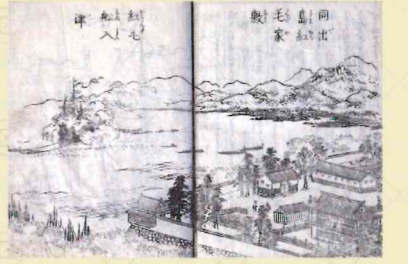 同出
島紅
毛家
敷
紅毛
舩入
津